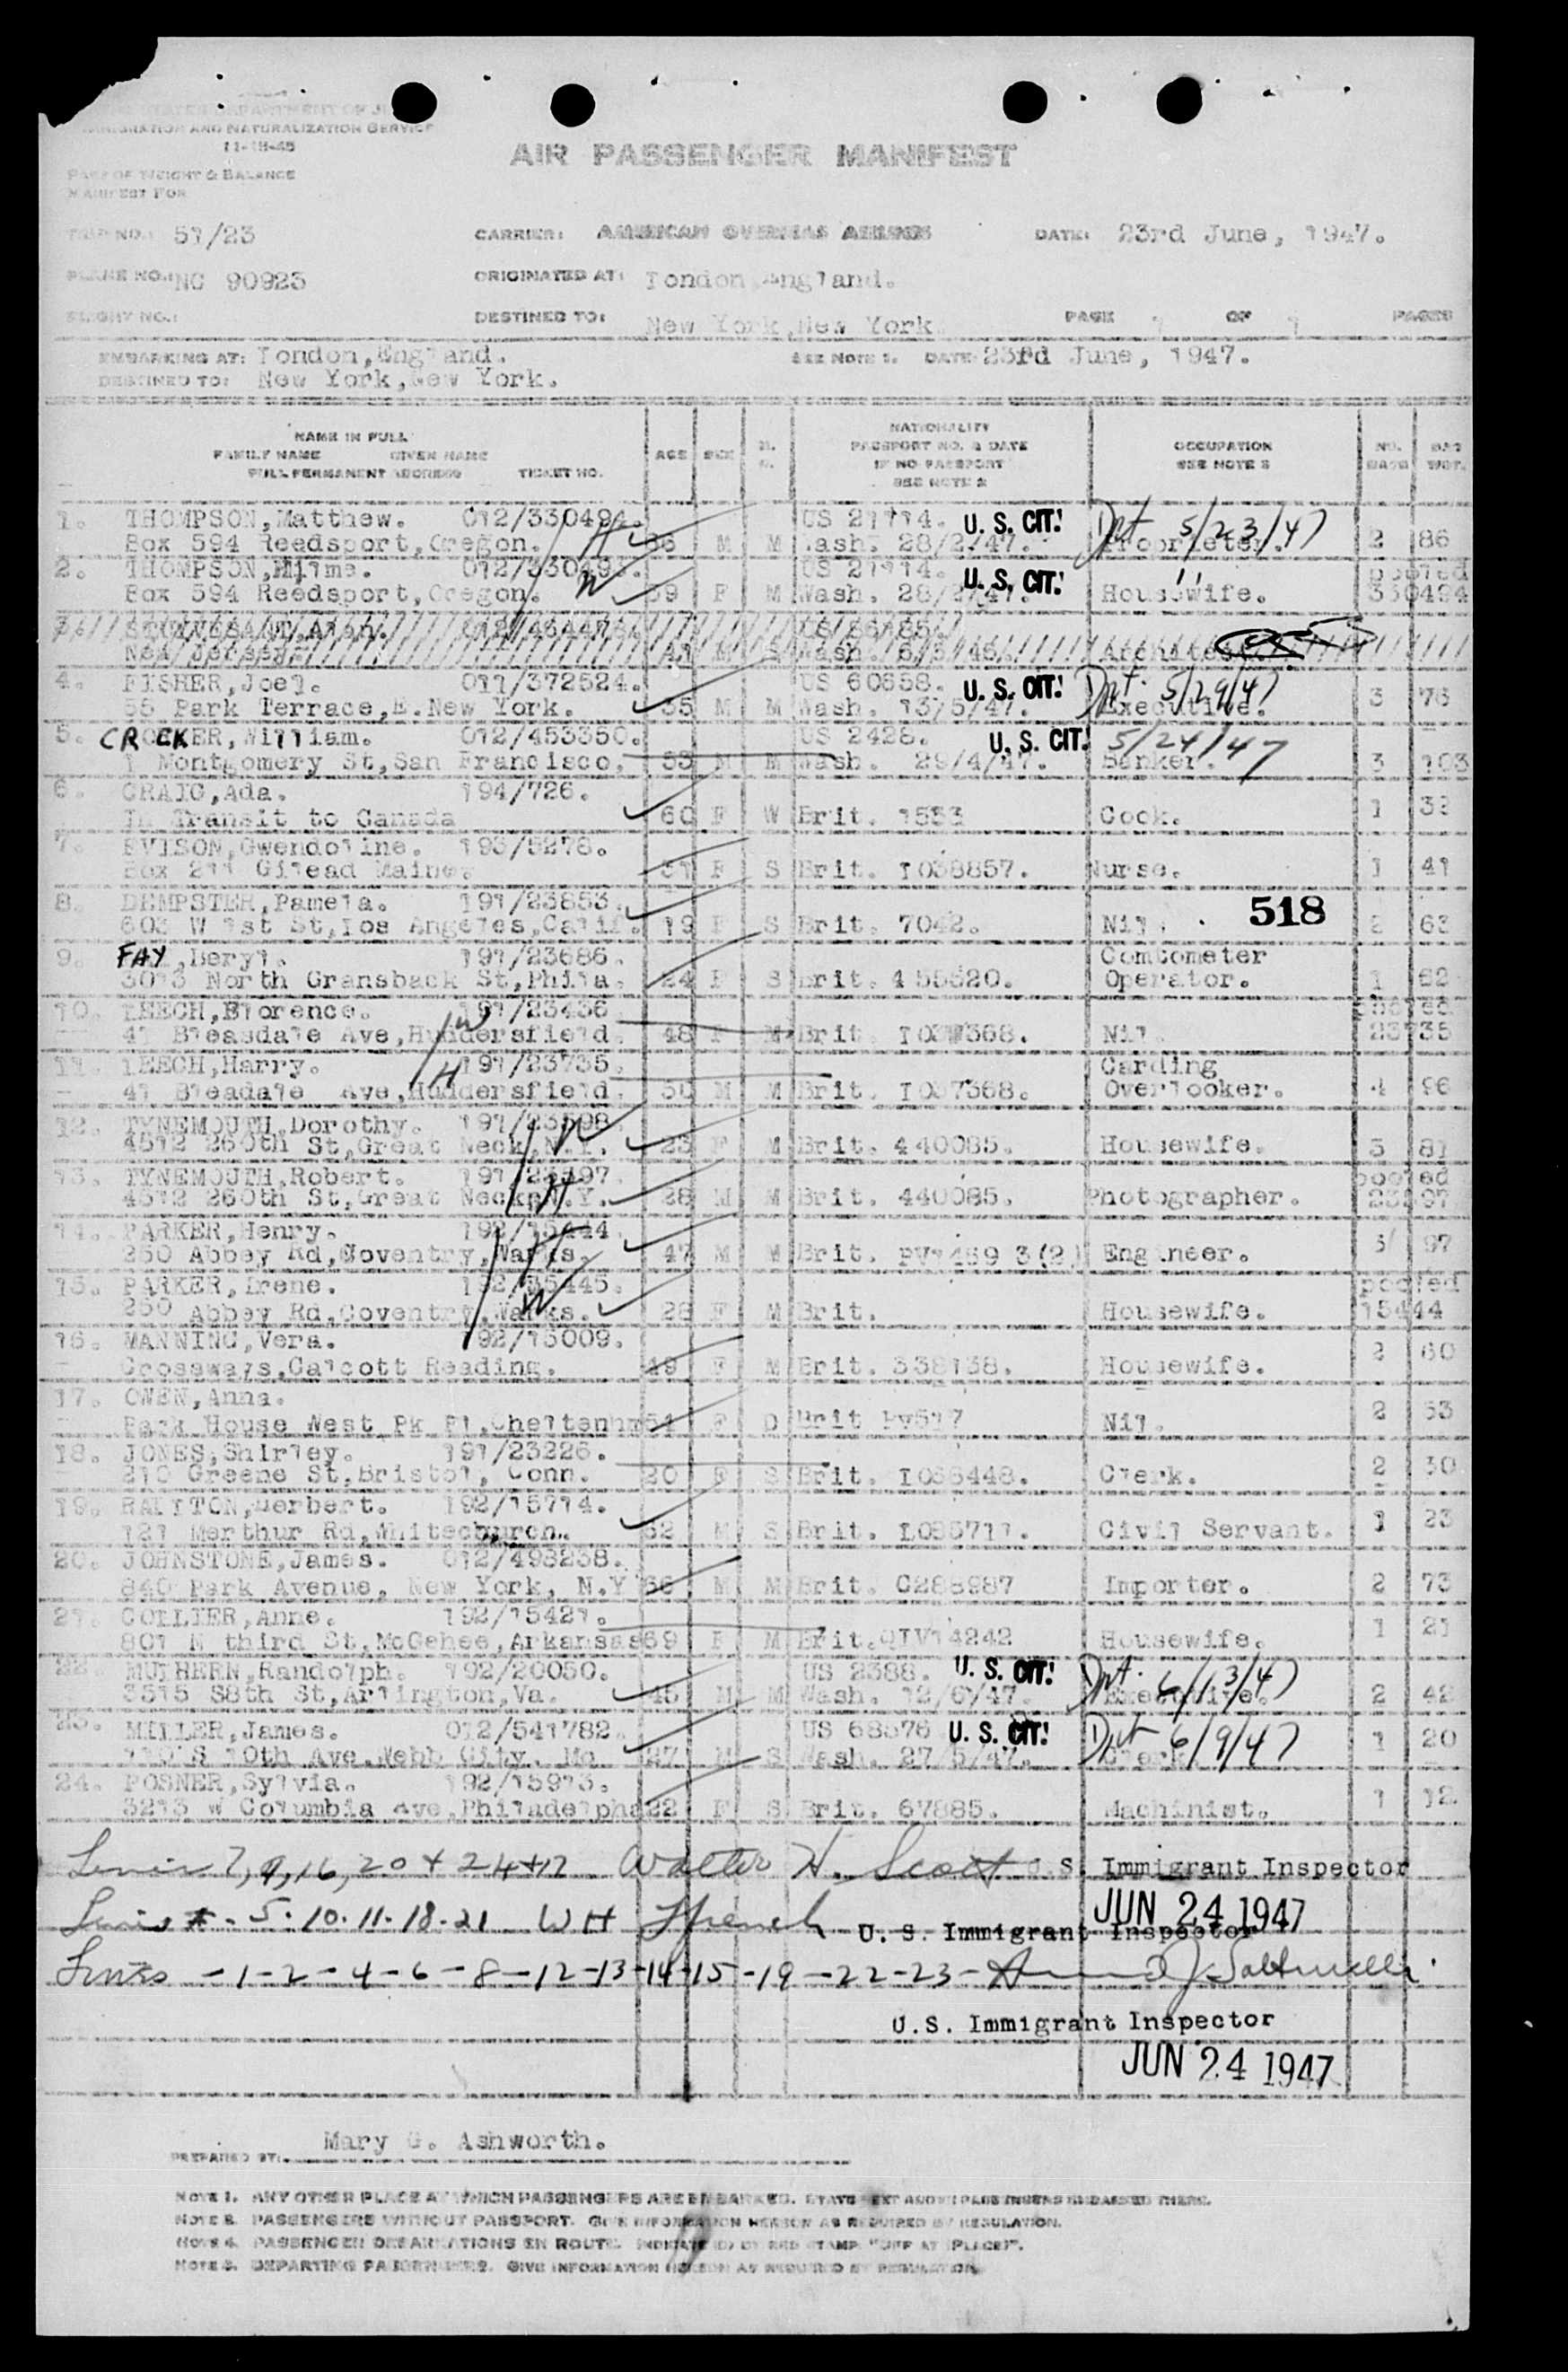 IMMIGRATION AND NATURALIZATION SERVICE
11-18-45
AIR PASSENGER MANIFEST
PART OF WEIGHT & BALANCE
MANIFEST FOR
TRIP NO.: 51/23 CARRIER: AMERICAN OVERSEAS AIRLINES DATE: 23rd June, 1947.
PLANE NO.: NC 90923 ORIGINATED AT: London England.
FLIGHT NO.: DESTINED TO: New York, New York PAGE 1 OF 1 PAGES
EMBARKING AT: London, England. SEE NOTE 1. DATE 23rd June, 1947.
DESTINED TO: New York, New York.
NAME IN FULL
FAMILY NAME GIVEN NAME
FULL PERMANENT ADDRESS TICKET NO.
AGE SEX
NATIONALITY
PASSPORT NO. & DATE
IF NO PASSPORT
SEE NOTE 2
OCCUPATION
SEE NOTE 3
NO. BAGS
1. THOMPSON, Matthew. 012/330494. US 21114. U. S. CIT. 5/23/47
Box 594 Reedsport, Oregon. H M M Wash. 28/2/47. Proprietor. 2 86
2. THOMPSON, Wilma. US 21114. U. S. CIT. "
Box 594 Reedsport, Oregon. W 59 F M Wash. 28/2/47. Housewife. 330494
3.
New Jersey. 41 M S Wash. Architect.
4. FISHER, Joel. 011/372524. US 60658. U. S. CIT. 5/29/47
55 Park Terrace, E. New York. 35 M M Wash. 13/5/47. Executive. 3 76
5. CROCKER, William. 012/453350. US 2428. U. S. CIT. 5/24/47
1 Montgomery St, San Francisco. 53 M M Wash. 29/4/47. Banker. 3 103
6. CRAIG, Ada. 194/726.
In Transit to Canada 60 F W Brit. 1533 Cook. 1 32
7. EVISON, Gwendoline. 193/5278.
Box 211 Gilead Maine. 31 F S Brit. L038857. Nurse. 1 41
8. DEMPSTER, Pamela. 191/23853. 518
603 W 1st St, Los Angeles, Calif. 19 F S Brit. 7042. Nil. 2 63
9. FAY, Beryl. 191/23686. Comtometer
3013 North Gransback St, Phila. 24 F S Brit. 455520. Operator. 1 62
10. LEECH, Florence. 191/23436 pooled
41 Bleasdale Ave, Huddersfield. W 48 F M Brit. Nil. 23735
11. LEECH, Harry. 191/23735. Carding
41 Bleadale Ave, Huddersfield. H 50 M M Brit. L037368. Overlooker. 4 96
12. TYNEMOUTH, Dorothy. 191/23598.
4512 260th St, Great Neck, N.Y. W 23 F M Brit. 440085. Housewife. 3 81
13. TYNEMOUTH, Robert. pooled
4512 260th St, Great Neck N.Y. H 28 M M Brit. 440085. Photographer.
14. PARKER, Henry. 192/15444.
250 Abbey Rd, Coventry, Warks. H 47 M M Brit. Engineer. 3 97
15. PARKER, Irene. 192/15445. pooled
250 Abbey Rd, Coventry, Warks. W 28 F M Brit. Housewife. 15444
16. MANNING, Vera. 192/15009.
Crossways, Calcott Reading. 49 F M Brit. 338138. Housewife. 2 60
17. OWEN, Anna.
Park House West Pk Pl, Cheltenhm 51 F D Brit Nil. 2 53
18. JONES, Shirley. 191/23226.
210 Greene St, Bristol, Conn. 20 F S Brit. Clerk. 2 30
19. Herbert. 192/15714.
121 Merthur Rd, Whitechurch. 62 M S Brit. Civil Servant. 1 23
20. JOHNSTONE, James. 012/493238.
840 Park Avenue, New York, N.Y 66 M M Brit. C288987 Importer. 2 73
21. COLLIER, Anne. 192/15421.
801 N third St, McGehee, Arkansas 69 F M Brit. Housewife. 1 21
22. MULHERN, Randolph. 192/20050. US 2388. U. S. CIT. 6/13/47
3515 S8th St, Arlington, Va. 45 M M Wash. 12/6/47. Executive. 2 42
23. MILLER, James. 012/541782. US 68376 U. S. CIT. 6/9/47
S 10th Ave Webb City, Mo 27 M S Wash. 27/5/47. Clerk 1 20
24. POSNER, Sylvia. 192/15913.
3213 W Columbia Ave, Philadelpha 22 F S Brit. 67885. Machinist. 1 12
7, 9, 16, 20 + 24 + 17 Walter H. Scott U.S. Immigrant Inspector
5-10-11-18-21 W H French JUN 24 1947
U. S. Immigrant Inspector
Lines -1-2-4-6-8-12-13-14-15-19-22-23-
U.S. Immigrant Inspector
JUN 24 1947
PREPARED BY: Mary G. Ashworth.
NOTE 1. ANY OTHER PLACE AT WHICH PASSENGERS ARE EMBARKED. STATE NEXT ABOVE PASSENGERS EMBARKED THERE.
NOTE 2. PASSENGERS WITHOUT PASSPORT. GIVE INFORMATION HEREON AS REQUIRED BY REGULATION.
NOTE 4. PASSENGER DEBARKATIONS EN ROUTE. INDICATE BY RED STAMP "OFF AT (PLACE)".
NOTE 5. DEPARTING PASSENGERS. GIVE INFORMATION HEREON AS REQUIRED BY REGULATION.